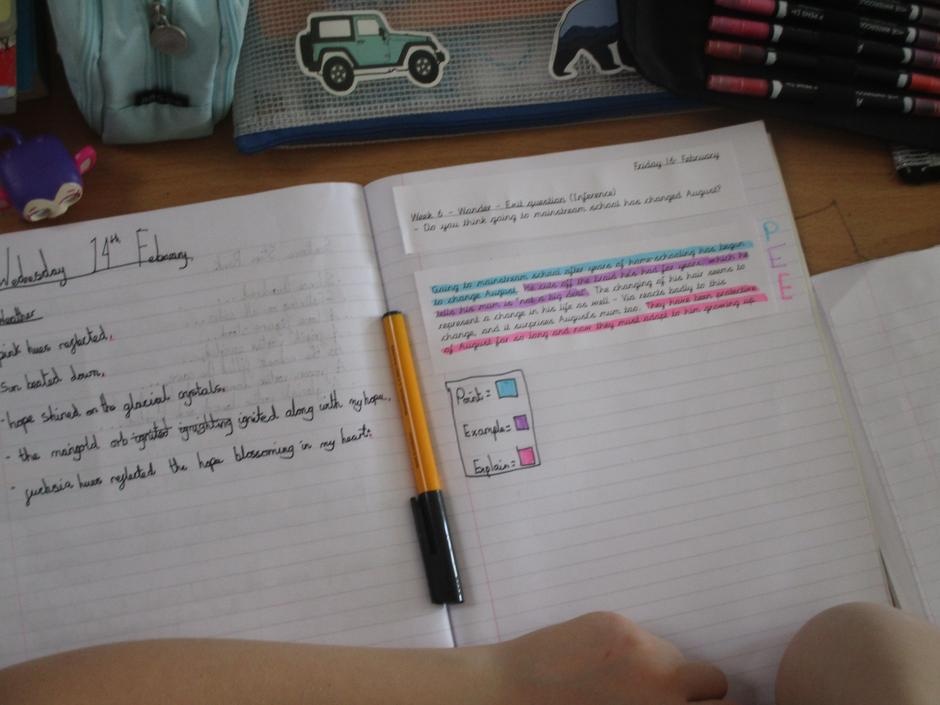 Wednesday 14th Febuary
Weather
pink hues reflected.
Sun beated down.
- hope shined on the glacial crystals.
- the marigold orb ignited ignighting ignited along with my hope.
- fuchsia hues reflected the hope blossoming in my heart.
Friday 16 February
Week 6 - Wonder - Exit question (Inference)
- Do you think going to mainstream school has changed August?
Going to mainstream school after years of home-schooling has begun
to change August. He cuts off the braid he's had for years, which he
tells his mum is "not a big deal". The changing of his hair seems to
represent a change in his life as well - Via reacts badly to this
change, and it surprises August's mum too. They have been protective
of August for so long and now they must adapt to him growing up.
P
E
E
Point =
Example =
Explain =